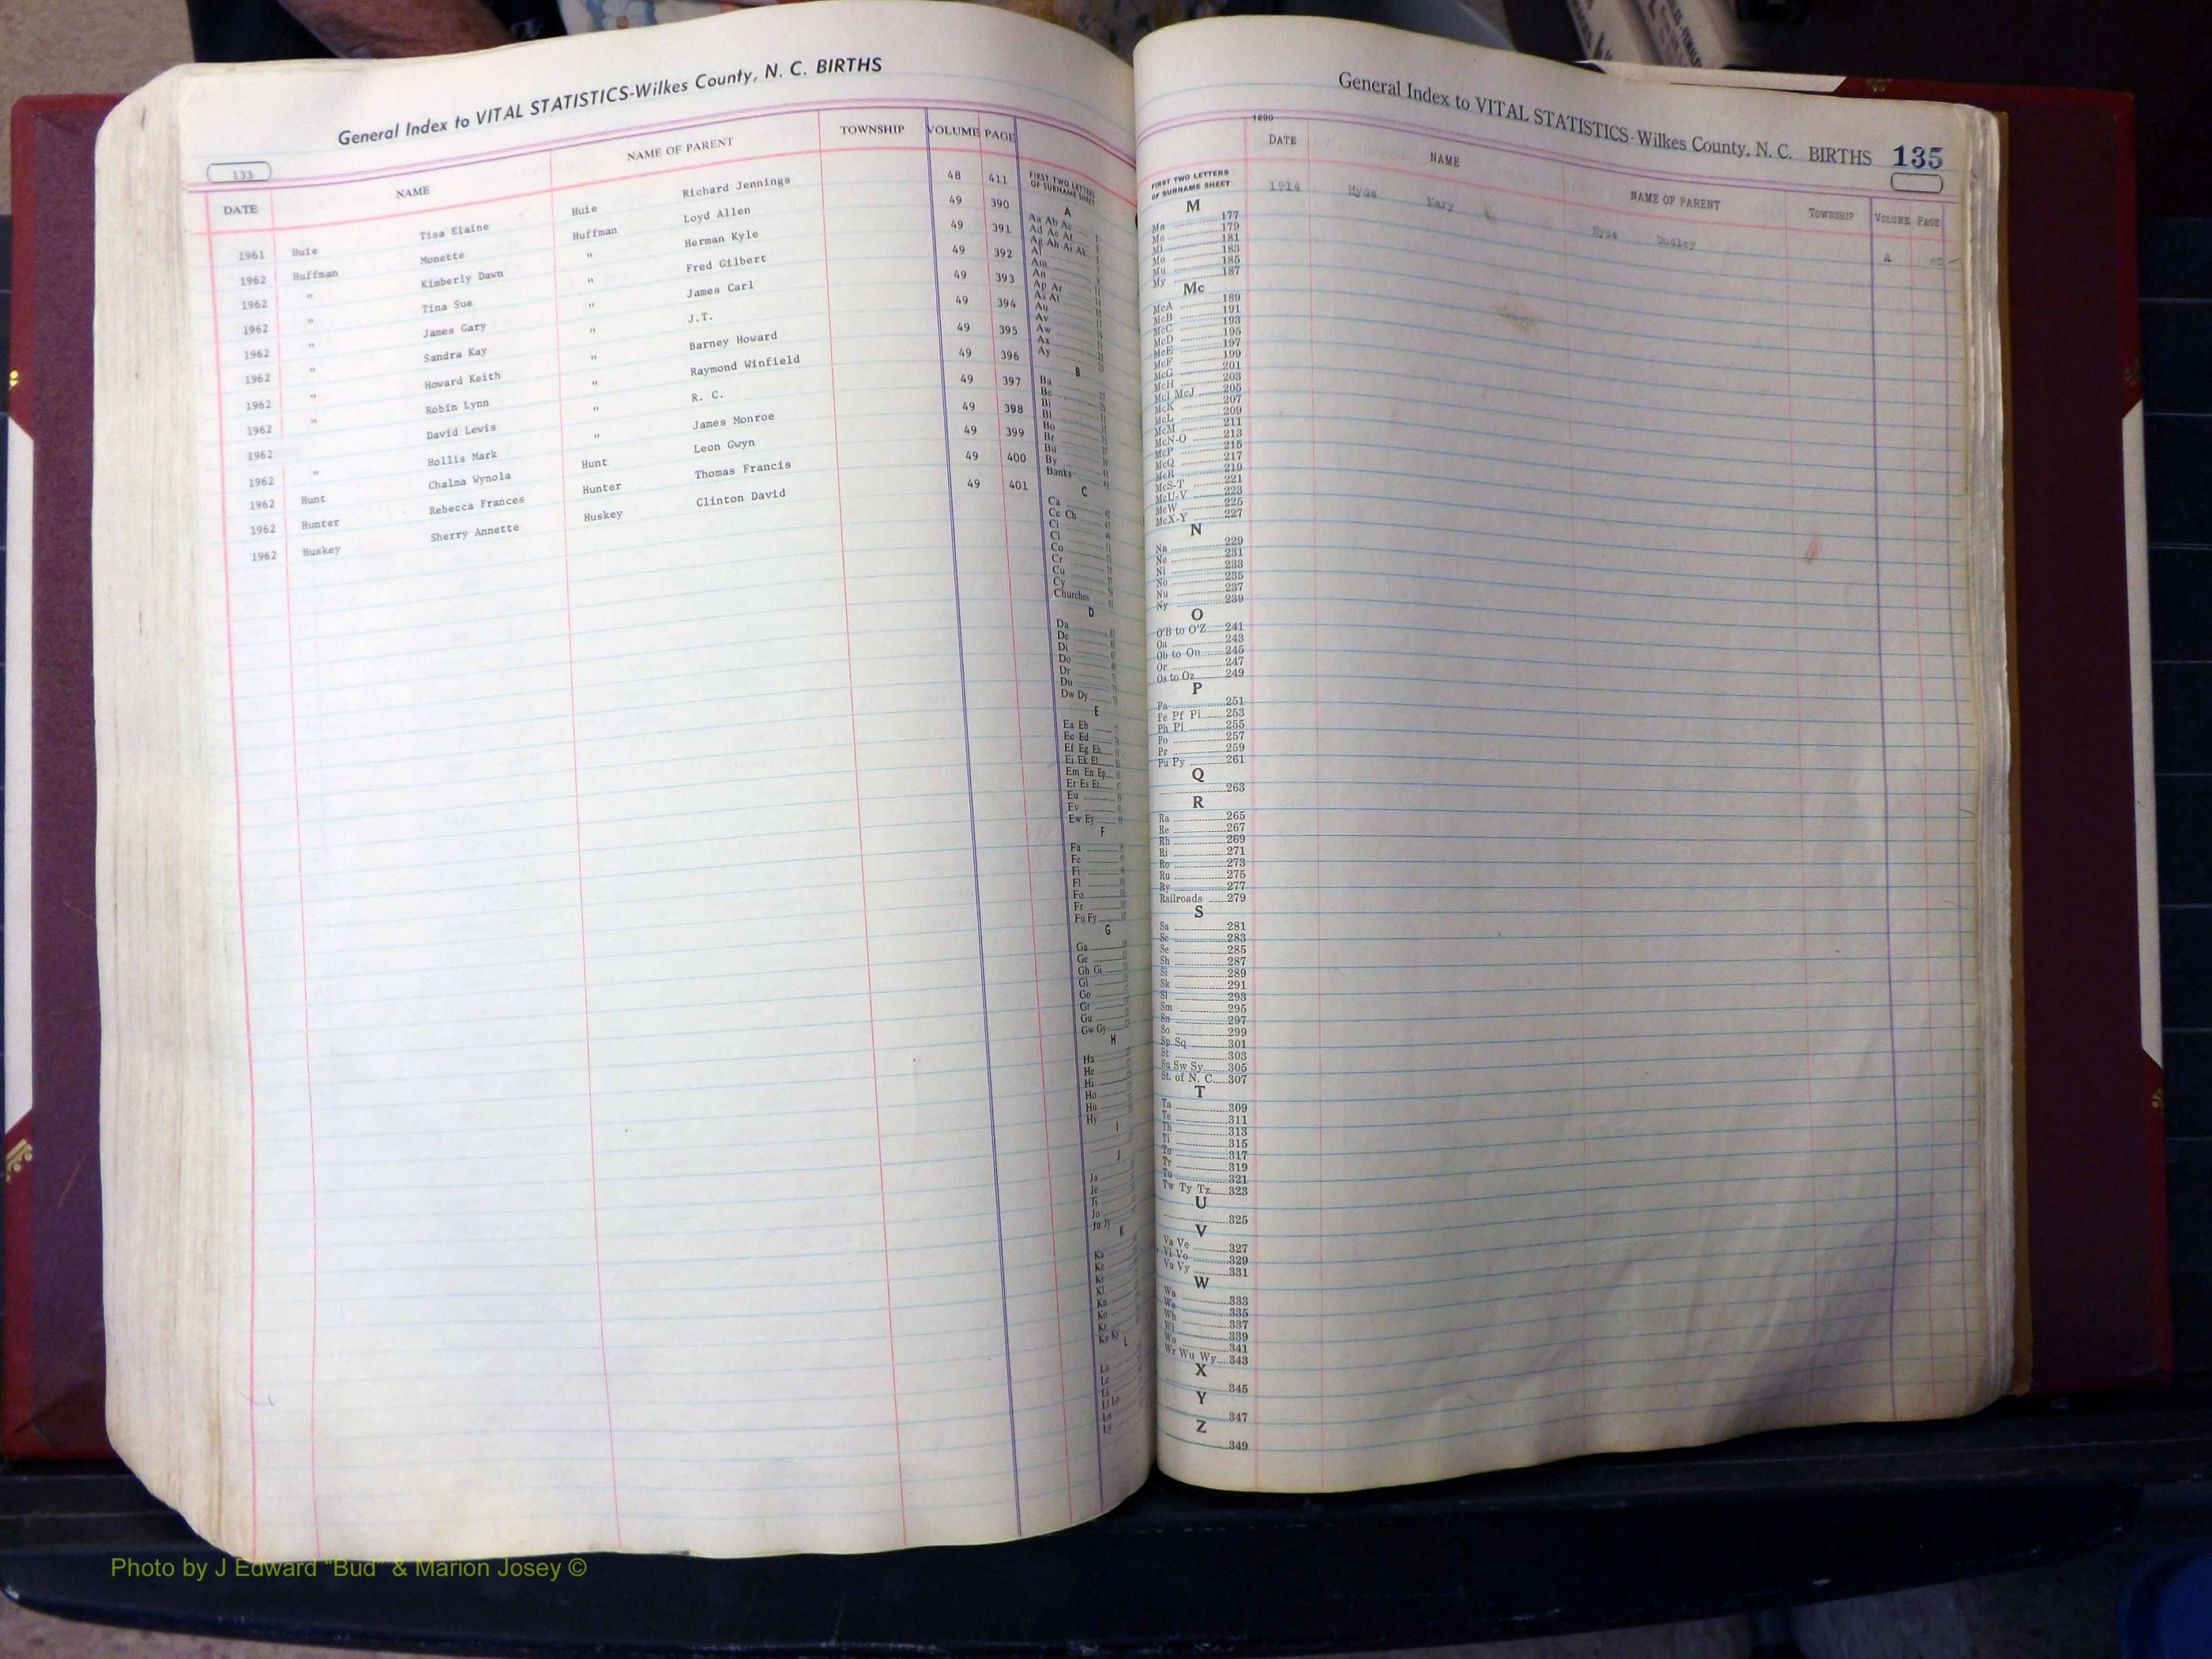 General Index to VITAL STATISTICS-Wilkes County, N. C. BIRTHS
133
DATE NAME NAME OF PARENT TOWNSHIP VOLUME PAGE
1961 Huie Tisa Elaine Huie Richard Jennings 48 411
1962 Huffman Monette Huffman Loyd Allen 49 390
1962 " Kimberly Dawn " Herman Kyle 49 391
1962 " Tina Sue " Fred Gilbert 49 392
1962 " James Gary " James Carl 49 393
1962 " Sandra Kay " J.T. 49 394
1962 " Howard Keith " Barney Howard 49 395
1962 " Robin Lynn " Raymond Winfield 49 396
1962 David Lewis " R. C. 49 397
1962 " Hollis Mark " James Monroe 49 398
1962 Hunt Chalma Wynola Hunt Leon Gwyn 49 399
1962 Hunter Rebecca Frances Hunter Thomas Francis 49 400
1962 Huskey Sherry Annette Huskey Clinton David 49 401
FIRST TWO LETTERS
OF SURNAME SHEET
A
Aa Ab Ac
Ad Ae Af
Ag Ah Ai Ak
Al
Am
An
Ap Ar
As At
Au
Av
Aw
Ax
Ay
B
Ba
Be
Bi
Bl
Bo
Br
Bu
By
Banks
C
Ca
Ce Ch
Ci
Cl
Co
Cr
Cu
Cy
Churches
D
Da
De
Di
Do
Dr
Du
Dw Dy
E
Ea Eb
Ec Ed
Ef Eg Eh
Ei Ek El
Em En Ep
Er Es Et
Eu
Ev
Ew Ey
F
Fa
Fe
Fi
Fl
Fo
Fr
Fu Fy
G
Ga
Ge
Gh Gi
Gl
Go
Gr
Gu
Gw Gy
H
Ha
He
Hi
Ho
Hu
Hy
I
J
Ja
Je
Ji
Jo
Ju Jy
K
Ka
Ke
Ki
Kl
Kn
Ko
Kr
Ku Ky
L
La
Le
Li
Ll Lo
Lu
Ly
General Index to VITAL STATISTICS-Wilkes County, N. C. BIRTHS 135
1890
DATE NAME NAME OF PARENT TOWNSHIP VOLUME PAGE
1914 Hyde Mary Hyde Dudley A
FIRST TWO LETTERS
OF SURNAME SHEET
M
Ma 177
Me 179
Mi 181
Mo 183
Mu 185
My 187
Mc
McA 189
McB 191
McC 193
McD 195
McE 197
McF 199
McG 201
McH 203
McI McJ 205
McK 207
McL 209
McM 211
McN-O 213
McP 215
McQ 217
McR 219
McS-T 221
McU-V 223
McW 225
McX-Y 227
N
Na 229
Ne 231
Ni 233
No 235
Nu 237
Ny 239
O
O'B to O'Z 241
Oa 243
Ob to On 245
Or 247
Os to Oz 249
P
Pa 251
Pe Pf Pi 253
Ph Pl 255
Po 257
Pr 259
Pu Py 261
Q
263
R
Ra 265
Re 267
Rh 269
Ri 271
Ro 273
Ru 275
Ry 277
Railroads 279
S
Sa 281
Sc 283
Se 285
Sh 287
Si 289
Sk 291
Sl 293
Sm 295
Sn 297
So 299
Sp Sq 301
St 303
Su Sw Sy 305
St. of N. C. 307
T
Ta 309
Te 311
Th 313
Ti 315
To 317
Tr 319
Tu 321
Tw Ty Tz 323
U
325
V
Va Ve 327
Vi Vo 329
Vu Vy 331
W
Wa 333
We 335
Wh 337
Wi 339
Wo 341
Wr Wu Wy 343
X
345
Y
347
Z
349
Photo by J Edward "Bud" & Marion Josey ©